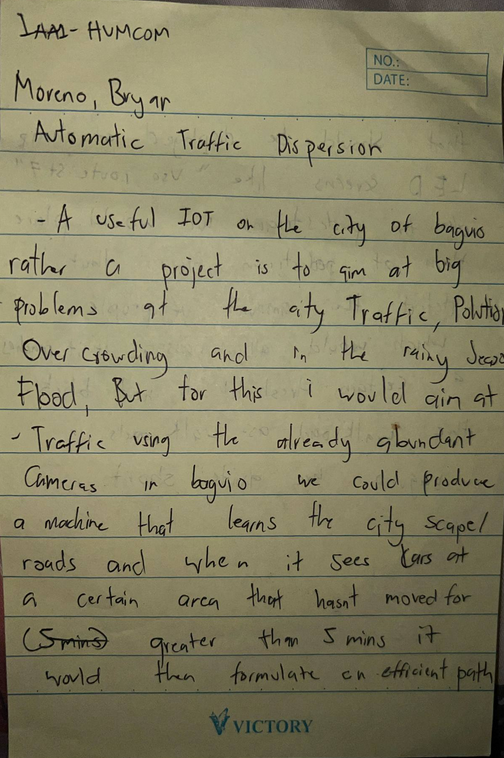 IAA1 - HUMCOM
NO.:
DATE:
Moreno, Bryan
Automatic Traffic Dispersion
- A useful IOT on the city of baguio
rather a project is to aim at big
problems at the city Traffic, Polution
Over crowding and in the rainy
Flood, But for this i would aim at
- Traffic using the already abundant
Cameras in baguio we could produce
a machine that learns the city scape/
roads and when it sees Cars at
a certain area that hasnt moved for
(5mins) greater than 5 mins it
would then formulate an efficient path
VICTORY